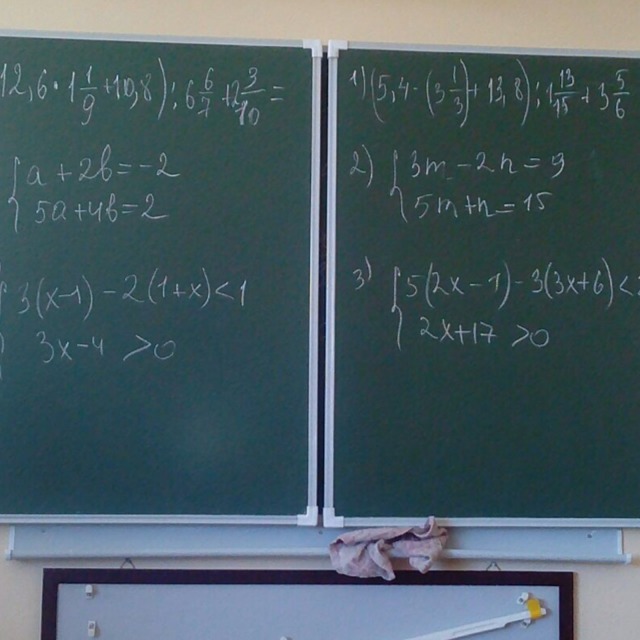 12,6 · 1 1/9 + 10,8) : 6 6/7 + 2 3/10 =
{a + 2b = -2
5a + 4b = 2
{3(x-1) - 2(1+x) < 1
3x-4 > 0
1) (5,4 · (3 1/3) + 13,8) : 1 13/15 + 3 5/6
2) {3m - 2n = 9
5m + n = 15
3) {5(2x - 1) - 3(3x+6) <
2x+17 > 0